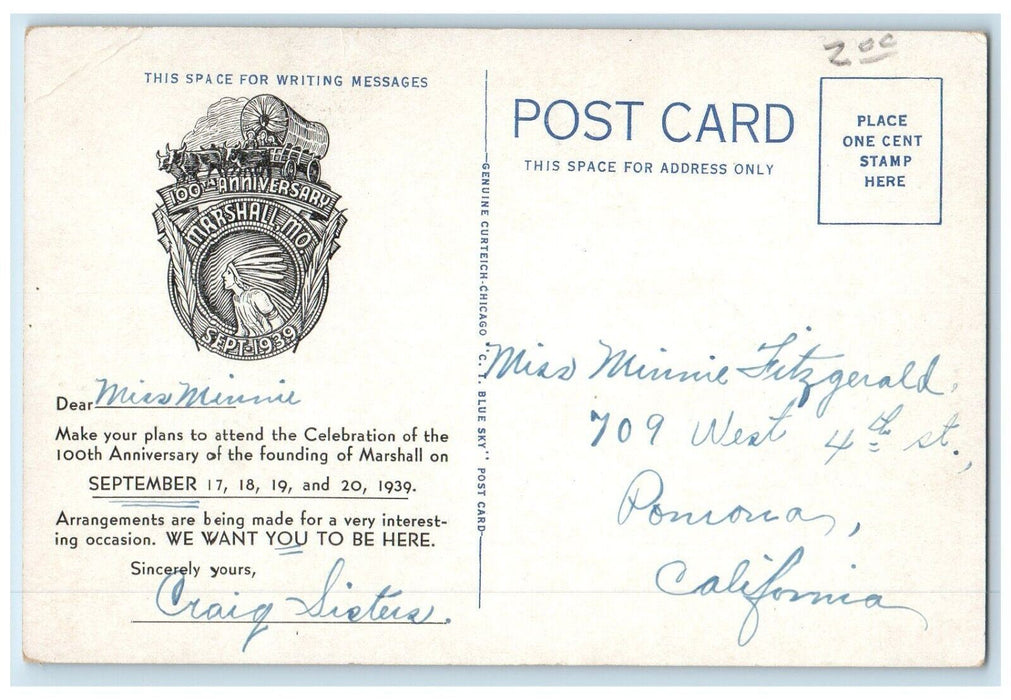 THIS SPACE FOR WRITING MESSAGES
100TH ANNIVERSARY
MARSHALL, MO.
SEPT-1939
Dear Miss Minnie
Make your plans to attend the Celebration of the
100th Anniversary of the founding of Marshall on
SEPTEMBER 17, 18, 19, and 20, 1939.
Arrangements are being made for a very interest-
ing occasion. WE WANT YOU TO BE HERE.
Sincerely yours,
Craig Sisters.
GENUINE CURTEICH-CHICAGO "C. T. BLUE SKY" POST CARD
2.00
POST CARD
THIS SPACE FOR ADDRESS ONLY
PLACE
ONE CENT
STAMP
HERE
Miss Minnie Fitzgerald,
709 West 4th st.,
Pomona,
California